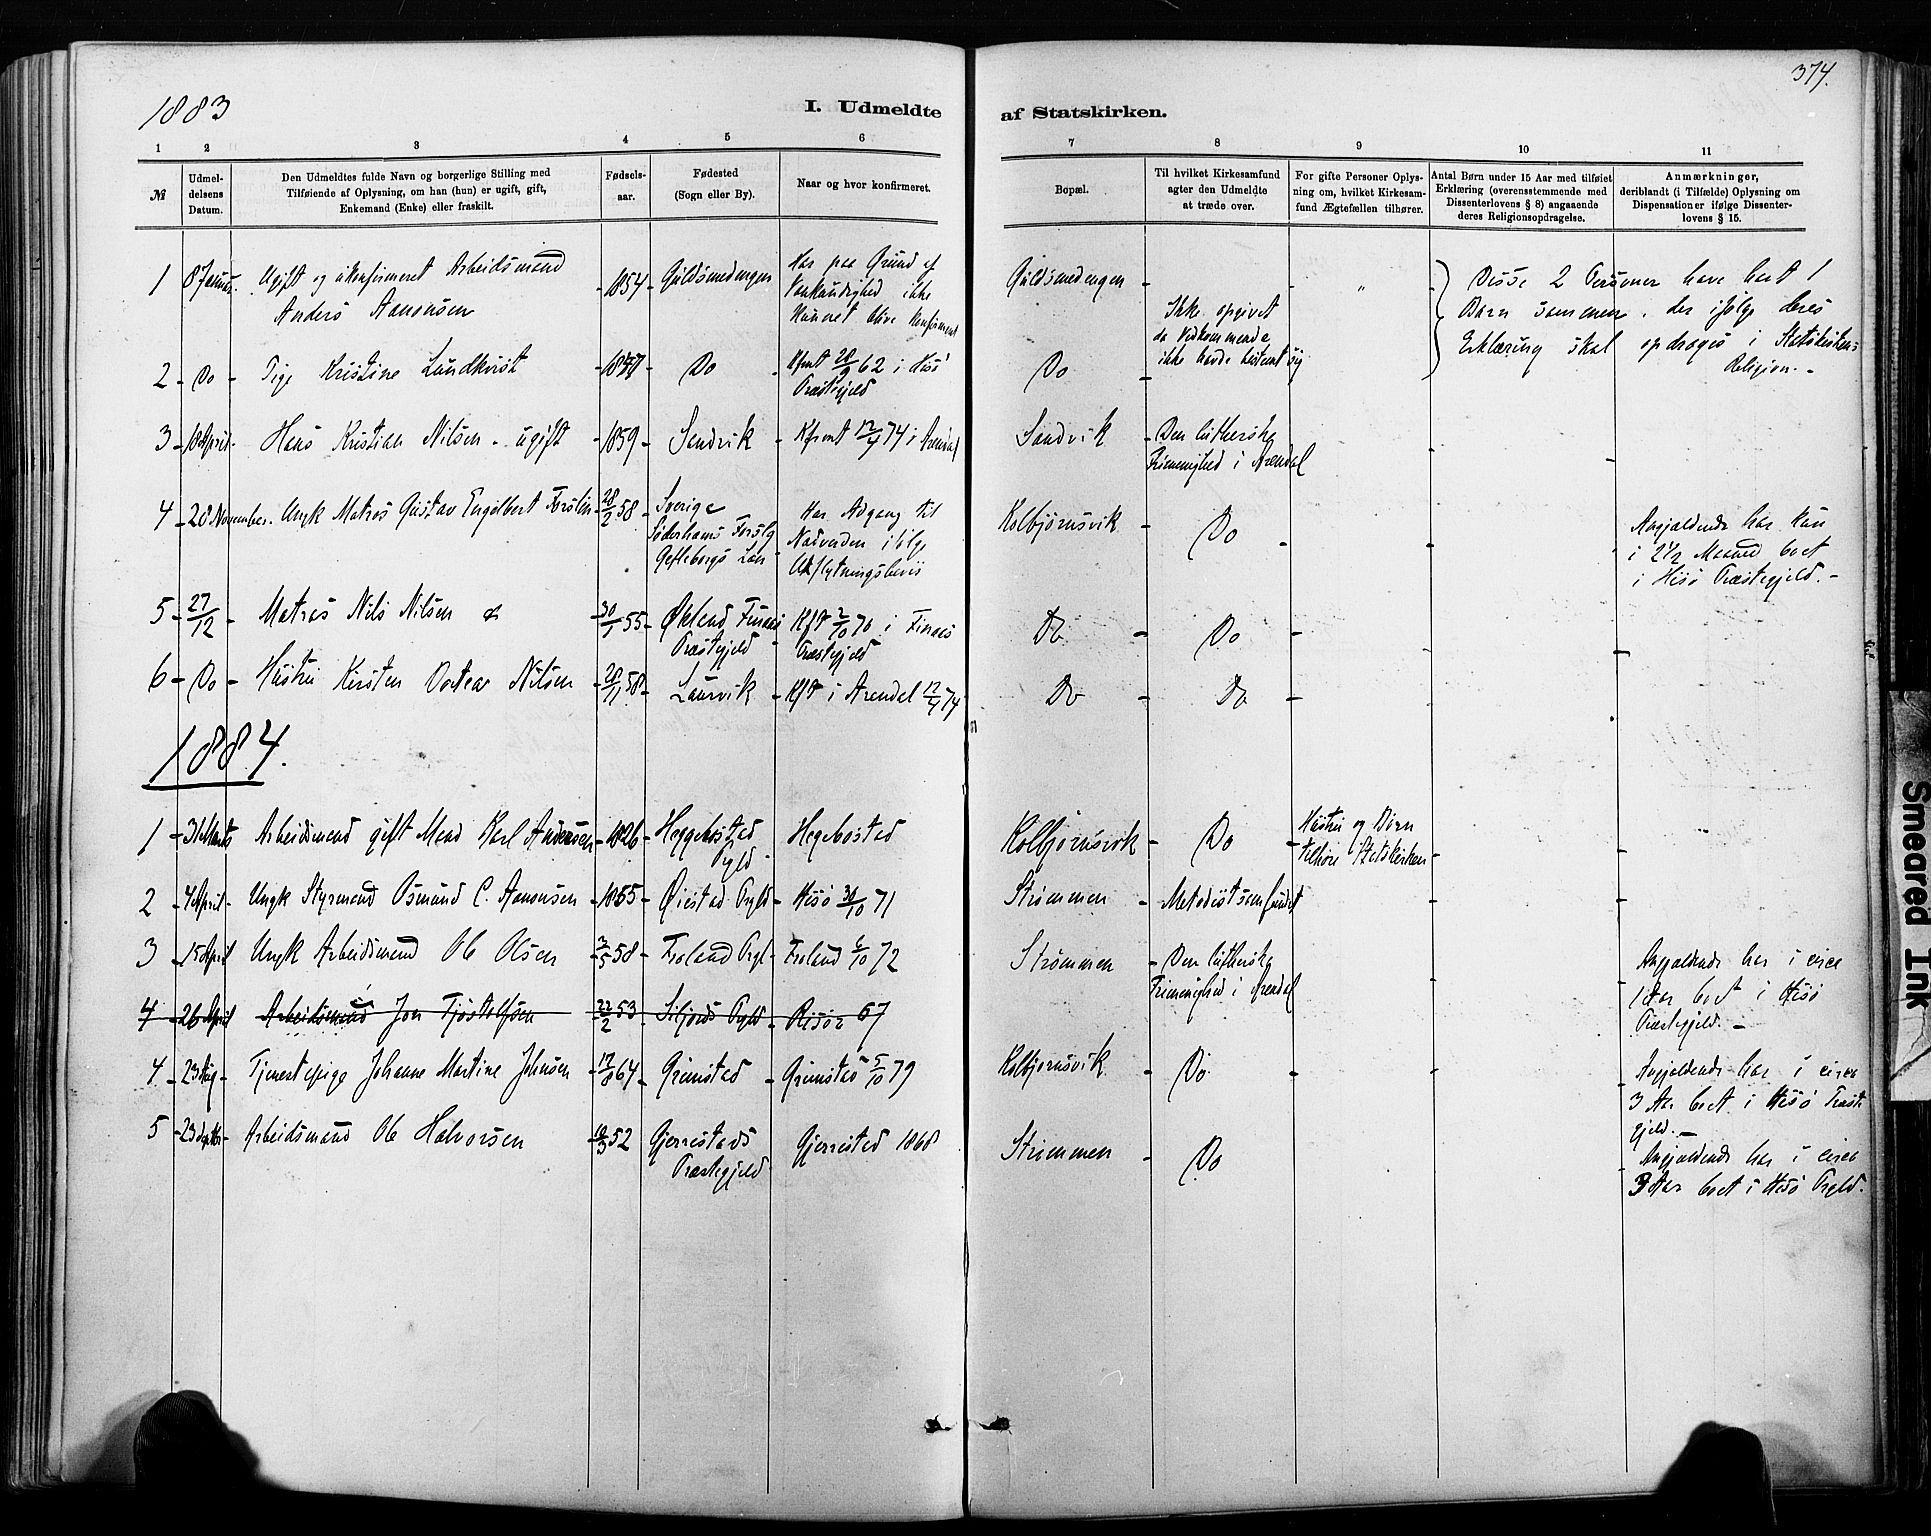 374.
1883
I. Udmeldte af Statskirken.
1 2 3 4 5 6 7 8 9 10 11
№
Udmel-
delsens
Datum.
Den Udmeldtes fulde Navn og borgerlige Stilling med
Tilføiende af Oplysning, om han (hun) er ugift, gift,
Enkemand (Enke) eller fraskilt.
Fødsels-
aar.
Fødested
(Sogn eller By).
Naar og hvor konfirmeret.
Bopæl.
Til hvilket Kirkesamfund
agter den Udmeldte
at træde over.
For gifte Personer Oplys-
ning om, hvilket Kirkesam-
fund Ægtefællen tilhører.
Antal Børn under 15 Aar med tilføiet
Erklæring (overensstemmende med
Dissenterlovens § 8) angaaende
deres Religionsopdragelse.
Anmærkninger,
deriblandt (i Tilfælde) Oplysning om
Dispensationer ifølge Dissenter-
lovens § 15.
1 8 Januar. Ugift og ukonfirmeret Arbeidsmand
Anders Aanonsen
1854 Guldsmedengen
Har paa Grund af
Vankundighed ikke
kunnet blive konfirmeret
Guldsmedengen
Ikke opgivet
da Vedkommende
ikke havde bestemt sig
"
Disse 2 Personer have havt 1
Barn sammen, der ifølge deres
Erklæring skal opdrages i Statskirkens
Religion.
2 Do Pige Kristine Lundkvist Do
62 i Hisø
Præstegjeld
Do
3 18 April. Hans Kristian Nilsen ugift 1859 Sandvik Kfrmt 12/4 74 i Arendal
Sandvik
Den lutherske
Frimenighed i Arendal
4 28 November. Ungk Matros Gustav Engelbert Forslin 28/2 58
Sverige
Søderhams Forslg
Gefleborgs Län
Har Adgang til
Nadverden ifølge
Udflytningsbevis
Kolbjørnsvik Do
Angjældende har kun
i 2 1/2 Maaned boet
i Hisø Præstegjeld.
5 27/12 Matros Nils Nilsen & 30/1 55
Præstegjeld
Kft 2/10 70 i
Præstegjeld
Do Do
6 Do Hustru Kirsten Dortea Nilsen 20/11 58 Laurvik Kft i Arendal 12/4 74
Do Do
1884.
1 31 Marts Arbeidsmand gift Mand Karl Andersen 1826 Heggebostad
Pgld
Hegebostad
Kolbjørnsvik Do
Hustru og Børn
tilhøre Statskirken
2 4 April Ungk Styrmand Osmund C. Aanonsen 1855 Øiestad Pgld Hisø 30/10 71
Strømmen Metodistsamfundet
3 15 April Ungk Arbeidsmand Ole Olsen 3/5 58 Froland Pgl. Froland 6/10 72
Strømmen
Den lutherske
Frimenighed i Arendal
Angjældende har i circa
1 Aar boet i Hisø
Præstegjeld.
4 26 April Arbeidsmand Jon Tjøstolfsen 22/2 53 Siljords Pgld Risør 67
4 23 Aug Tjenestepige Johanne Martine Johnsen 17/8 64 Grimstad Grimstad 5/10 79
Kolbjørnsvik Do
Angjældende har i circa
3 Aar boet i Hisø Præste
gjeld.
5 23 Septbr Arbeidsmand Ole Halvorsen 52 Gjerrestads
Præstegjeld
Gjerrestad 1868
Strømmen Do
Angjældende har i circa
3 Aar boet i Hisø Pgld.
Smeared Ink